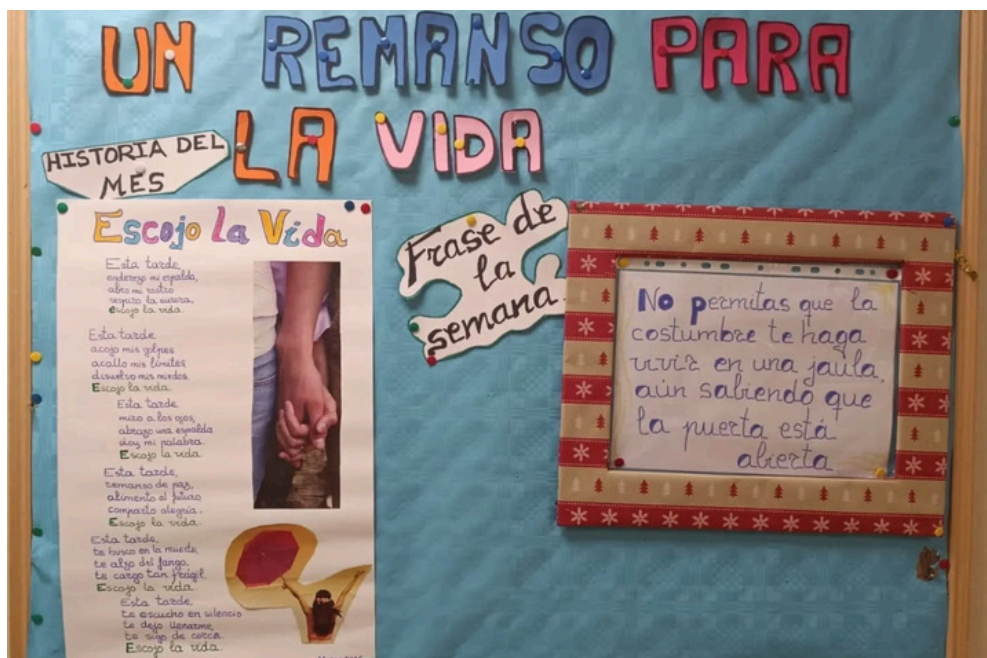 UN REMANSO PARA
LA VIDA
HISTORIA DEL
MES
Escojo La Vida
Esta tarde,
enderezo mi espalda,
abro mi rostro
respiro la aurora,
escojo la vida.
Esta tarde,
acojo mis golpes
acallo mis límites
disuelvo mis miedos.
Escojo la vida.
Esta tarde
miro a los ojos,
abrazo una espalda
doy mi palabra.
Escojo la vida.
Esta tarde,
remanso de paz,
alimento el futuro
comparto alegría.
Escojo la vida.
Esta tarde,
te busco en la muerte,
te alzo del fango,
te cargo tan frágil.
Escojo la vida.
Esta tarde,
te escucho en silencio
te dejo llenarme,
te sigo de cerca.
Escojo la vida.
Frase de
la
semana.
No permitas que la
costumbre te haga
vivir en una jaula,
aún sabiendo que
la puerta está
abierta